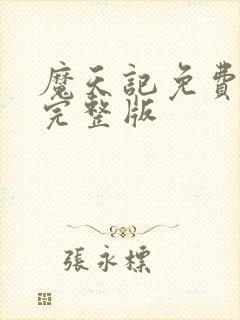 魔天記免費
完整版
張永標